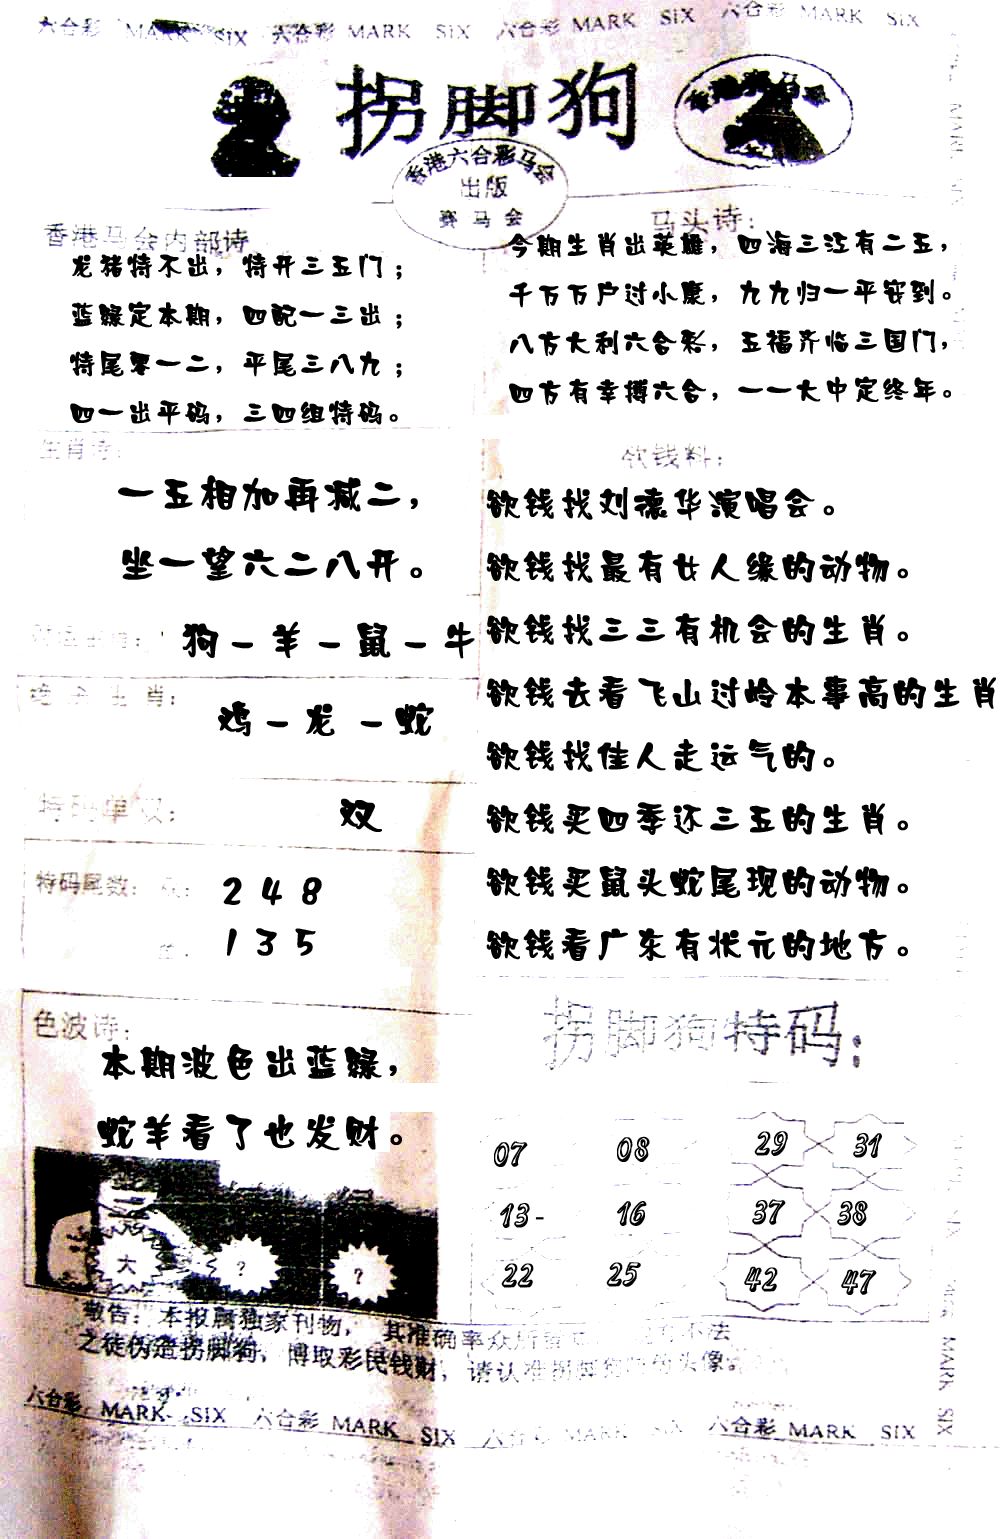 六合彩 MARK SIX 六合彩 MARK SIX 六合彩 MARK SIX 六合彩 MARK SIX
拐脚狗
香港赛马会
香港六合彩马会
出版
赛马会
香港马会内部诗
龙猪特不出，特开三五门；
蓝绿定本期，四配一三出；
特尾零一二，平尾三八九；
四一出平码，三四组特码。
马头诗：
今期生肖出英雄，四海三江有二五，
千万万户过小康，九九归一平安到。
八方大利六合彩，五福齐临三国门，
四方有幸搏六合，一一大中定终年。
生肖诗：
一五相加再减二，
坐一望六二八开。
狗－羊－鼠－牛
绝杀生肖：
鸡－龙－蛇
特码单双：
双
特码尾数：
2 4 8
1 3 5
色波诗：
本期波色出蓝绿，
蛇羊看了也发财。
大 ? ?
欲钱料：
欲钱找刘德华演唱会。
欲钱找最有女人缘的动物。
欲钱找三三有机会的生肖。
欲钱去看飞山过岭本事高的生肖
欲钱找佳人走运气的。
欲钱买四季还三五的生肖。
欲钱买鼠头蛇尾现的动物。
欲钱看广东有状元的地方。
拐脚狗特码：
07 08 29 31
13- 16 37 38
22 25 42 47
敬告：本报属独家刊物，其准确率众所皆 不法
之徒伪造拐脚狗，博取彩民钱财，请认准拐脚狗 头像。
六合彩 MARK SIX 六合彩 MARK SIX 六合彩 MARK SIX 六合彩 MARK SIX
MARK SIX